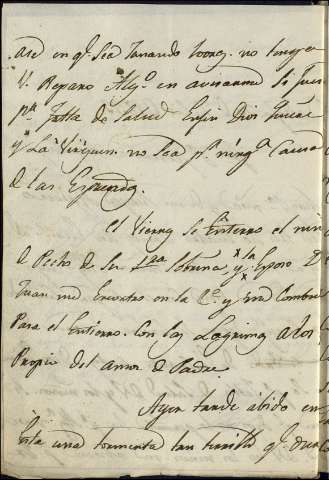 en q.e sea tomando no tenga
V. Reparo Alg.o en avisarme si fues
p.r falta de Salud Enfin Dios quiera
y La Virguen no sea p.r ning.a Causa
de las Espresada.
el Vierne se Enterro el niñ
de Pecho de su 1.ra Sobrina, y la Esposo D.
Juan me Encontro en la C.e y me Combid
Para el Entierro. Con las Lagrima a los
Propio del amor de Padre.
Ayer tarde abido en
Esta una tormenta tan q.e